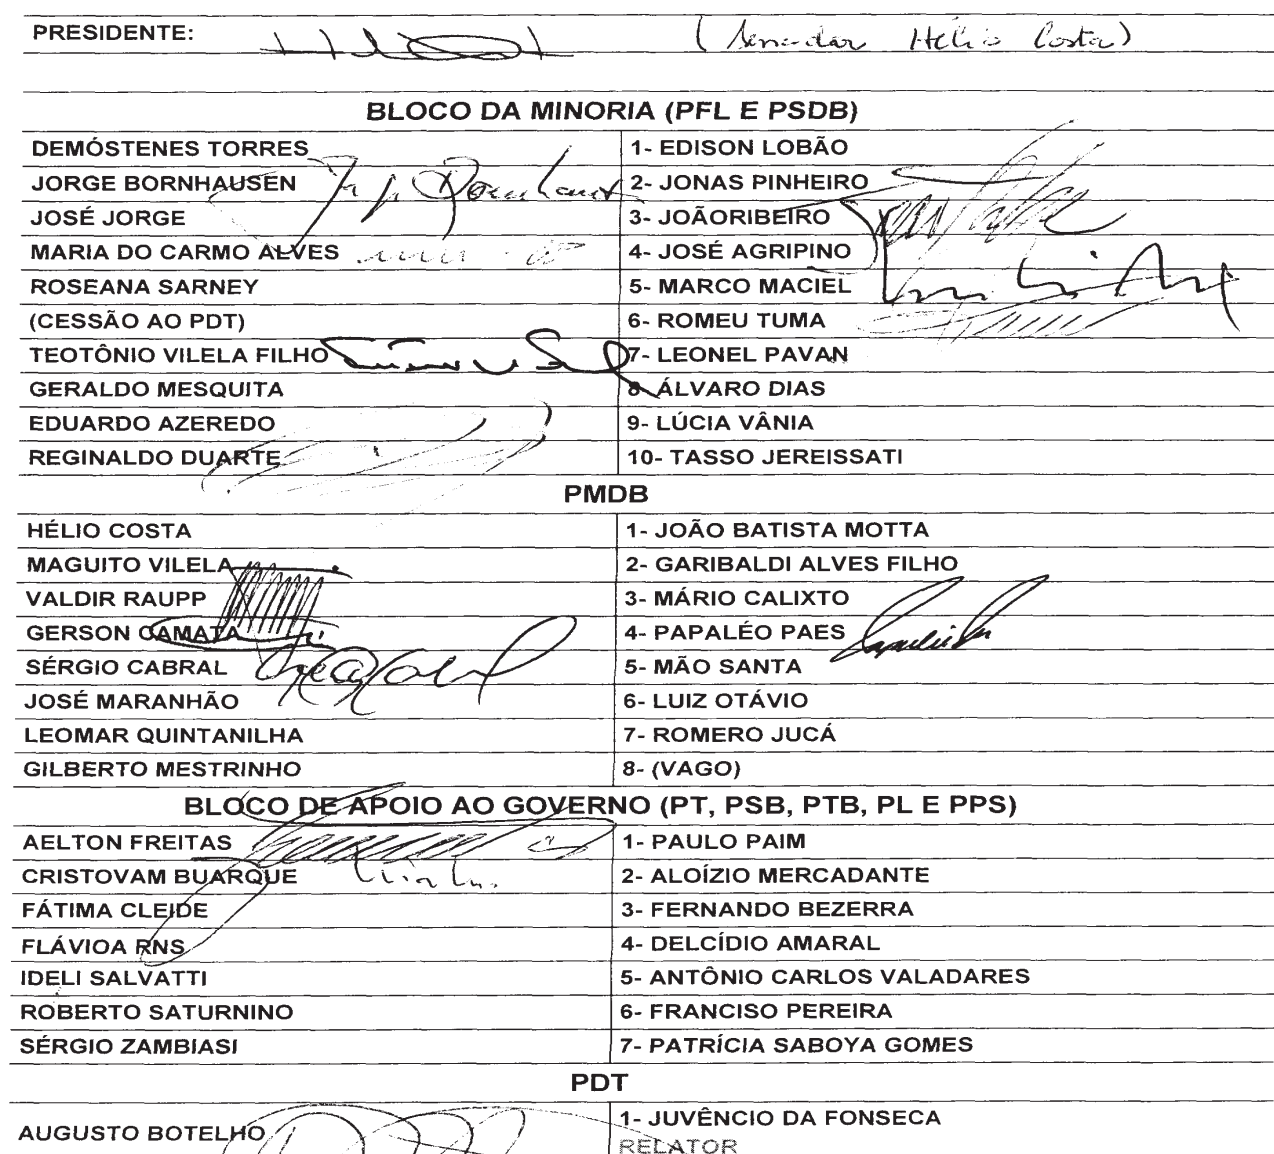 PRESIDENTE: (Senador Hélio Costa)
BLOCO DA MINORIA (PFL E PSDB)
DEMÓSTENES TORRES 1- EDISON LOBÃO
JORGE BORNHAUSEN 2- JONAS PINHEIRO
JOSÉ JORGE 3- JOÃORIBEIRO
MARIA DO CARMO ALVES 4- JOSÉ AGRIPINO
ROSEANA SARNEY 5- MARCO MACIEL
(CESSÃO AO PDT) 6- ROMEU TUMA
TEOTÔNIO VILELA FILHO 7- LEONEL PAVAN
GERALDO MESQUITA 8- ÁLVARO DIAS
EDUARDO AZEREDO 9- LÚCIA VÂNIA
REGINALDO DUARTE 10- TASSO JEREISSATI
PMDB
HÉLIO COSTA 1- JOÃO BATISTA MOTTA
MAGUITO VILELA 2- GARIBALDI ALVES FILHO
VALDIR RAUPP 3- MÁRIO CALIXTO
GERSON CAMATA 4- PAPALÉO PAES
SÉRGIO CABRAL 5- MÃO SANTA
JOSÉ MARANHÃO 6- LUIZ OTÁVIO
LEOMAR QUINTANILHA 7- ROMERO JUCÁ
GILBERTO MESTRINHO 8- (VAGO)
BLOCO DE APOIO AO GOVERNO (PT, PSB, PTB, PL E PPS)
AELTON FREITAS 1- PAULO PAIM
CRISTOVAM BUARQUE 2- ALOÍZIO MERCADANTE
FÁTIMA CLEIDE 3- FERNANDO BEZERRA
FLÁVIOA RNS 4- DELCÍDIO AMARAL
IDELI SALVATTI 5- ANTÔNIO CARLOS VALADARES
ROBERTO SATURNINO 6- FRANCISO PEREIRA
SÉRGIO ZAMBIASI 7- PATRÍCIA SABOYA GOMES
PDT
AUGUSTO BOTELHO 1- JUVÊNCIO DA FONSECA
RELATOR